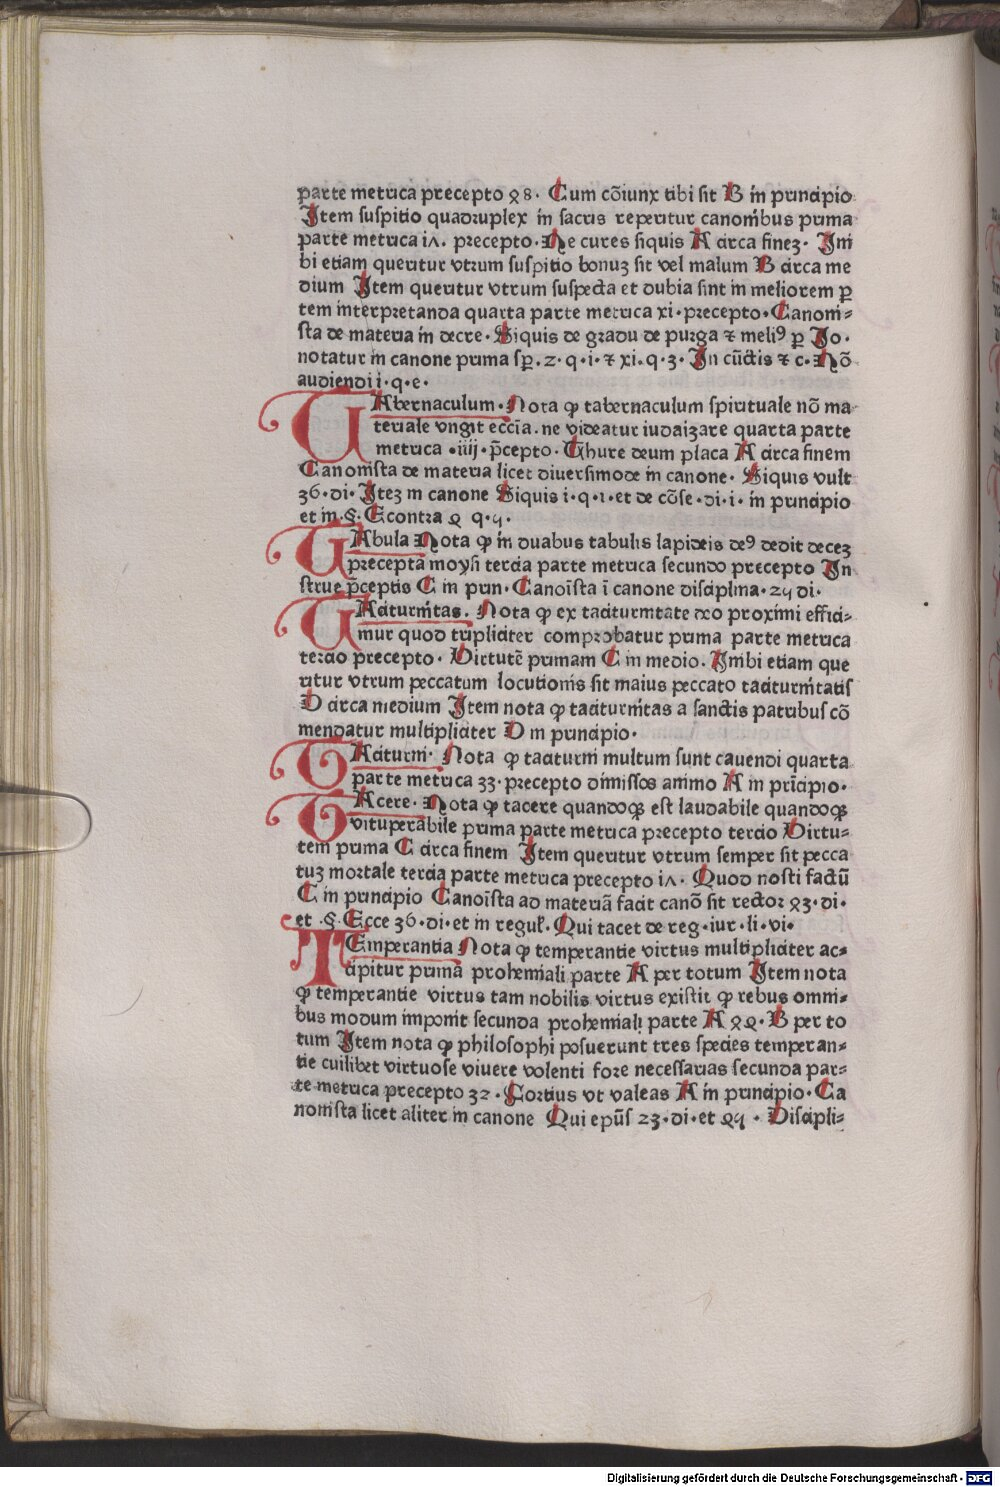 parte metrica precepto 48. Cum cõiunx tibi sit B in principio
Item suspitio quadruplex in sacris reperitur canonibus prima
parte metrica iʌ. precepto. Ne cures siquis A circa finez. Im
bi etiam queritur vtrum suspitio bonuz sit vel malum B circa me
dium Item queritur vtrum suspecta et dubia sint in meliorem ꝑ
tem interpretanda quarta parte metrica xi. precepto. Canoni-
sta de materia in decre. Siquis de gradu de purga ⁊ meliꝰ ꝑ Io.
notatur in canone prima sꝑ. 2. q. i. ⁊ xi. q. 3. In cũctis ⁊ c. Nõ
audiendi i. q. e.
TAbernaculum. Nota ꝙ tabernaculum spirituale nõ ma
teriale vngit ecc̃ia. ne videatur iudaizare quarta parte
metrica .iiij. p̃cepto. Thure deum placa A circa finem
Canonista de materia licet diuersimode in canone. Siquis vult
36. di. Itez in canone Siquis i. q. i. et de cõse. di. i. in principio
et in .§. Econtra 4 q. 5.
TAbula Nota ꝙ in duabus tabulis lapideis deꝰ dedit decez
precepta moysi tercia parte metrica secundo precepto In
strue p̃ceptis C in prin. Canoĩsta ĩ canone disciplina. 25 di.
TAciturnitas. Nota ꝙ ex taciturnitate deo proximi effici-
mur quod tripliciter comprobatur prima parte metrica
tercio precepto. Virtutẽ primam C in medio. Inibi etiam que
ritur vtrum peccatum locutionis sit maius peccato taciturnitatis
D circa medium Item nota ꝙ taciturnitas a sanctis patribus cõ
mendatur multipliciter D in principio.
TAciturni. Nota ꝙ taciturni multum sunt cauendi quarta
parte metrica 33. precepto dimissos animo A in prĩcipio.
TAcere. Nota ꝙ tacere quandoqꝫ est laudabile quandoqꝫ
vituperabile prima parte metrica precepto tercio Virtu-
tem prima C circa finem Item queritur vtrum semper sit pecca
tuz mortale tercia parte metrica precepto iʌ. Quod nosti factũ
C in principio Canoĩsta ad materiã facit canõ sit rector 43. di.
et .§. Ecce 36. di. et in regul̛. Qui tacet de reg. iur. li. vi.
TEmperantia Nota ꝙ temperantie virtus multipliciter ac-
cipitur prima prohemiali parte A per totum Item nota
ꝙ temperantie virtus tam nobilis virtus existit ꝙ rebus omni-
bus modum imponit secunda prohemiali parte A 44. B per to
tum Item nota ꝙ philosophi posuerunt tres species temperan-
tie cuilibet virtuose viuere volenti fore necessarias secunda par-
te metrica precepto 32. Fortius vt valeas A in principio. Ca
nonista licet aliter in canone Qui ep̃us 23. di. et 45. Discipli-
Digitalisierung gefördert durch die Deutsche Forschungsgemeinschaft - DFG